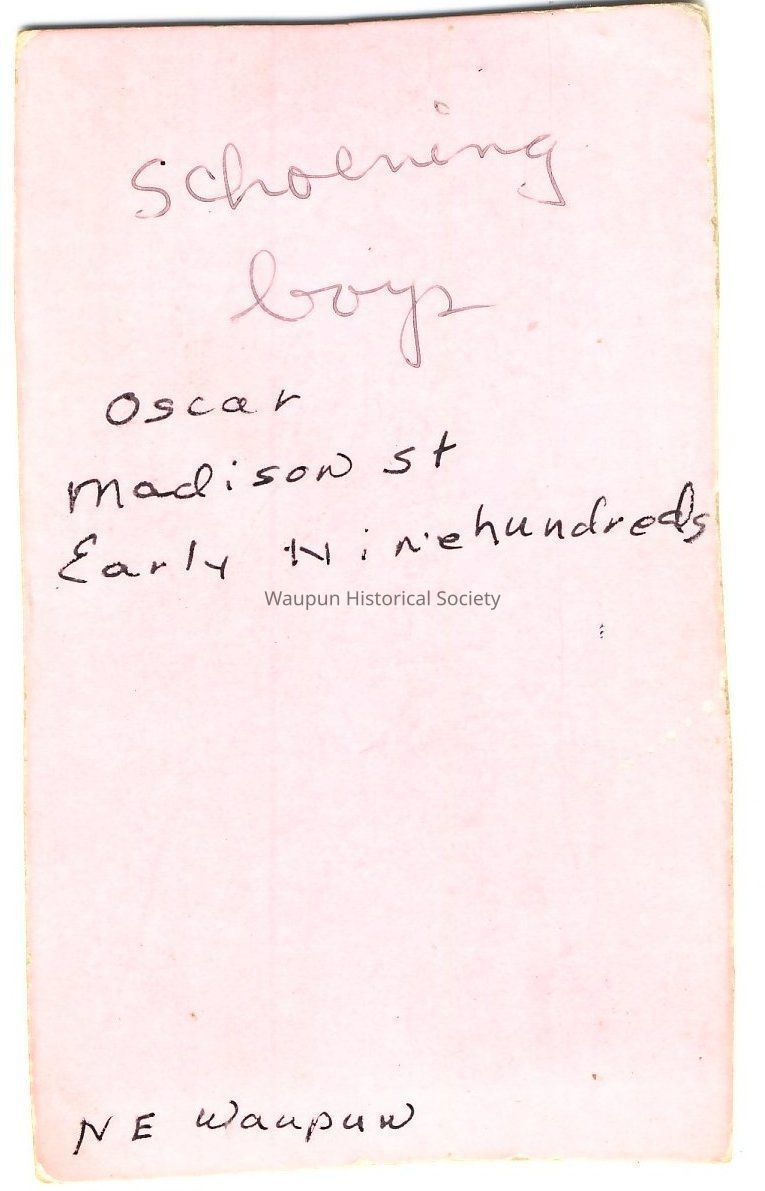 Schoening
boys
Oscar
Madison St
Early Ninehundreds
Waupun Historical Society
NE Waupun